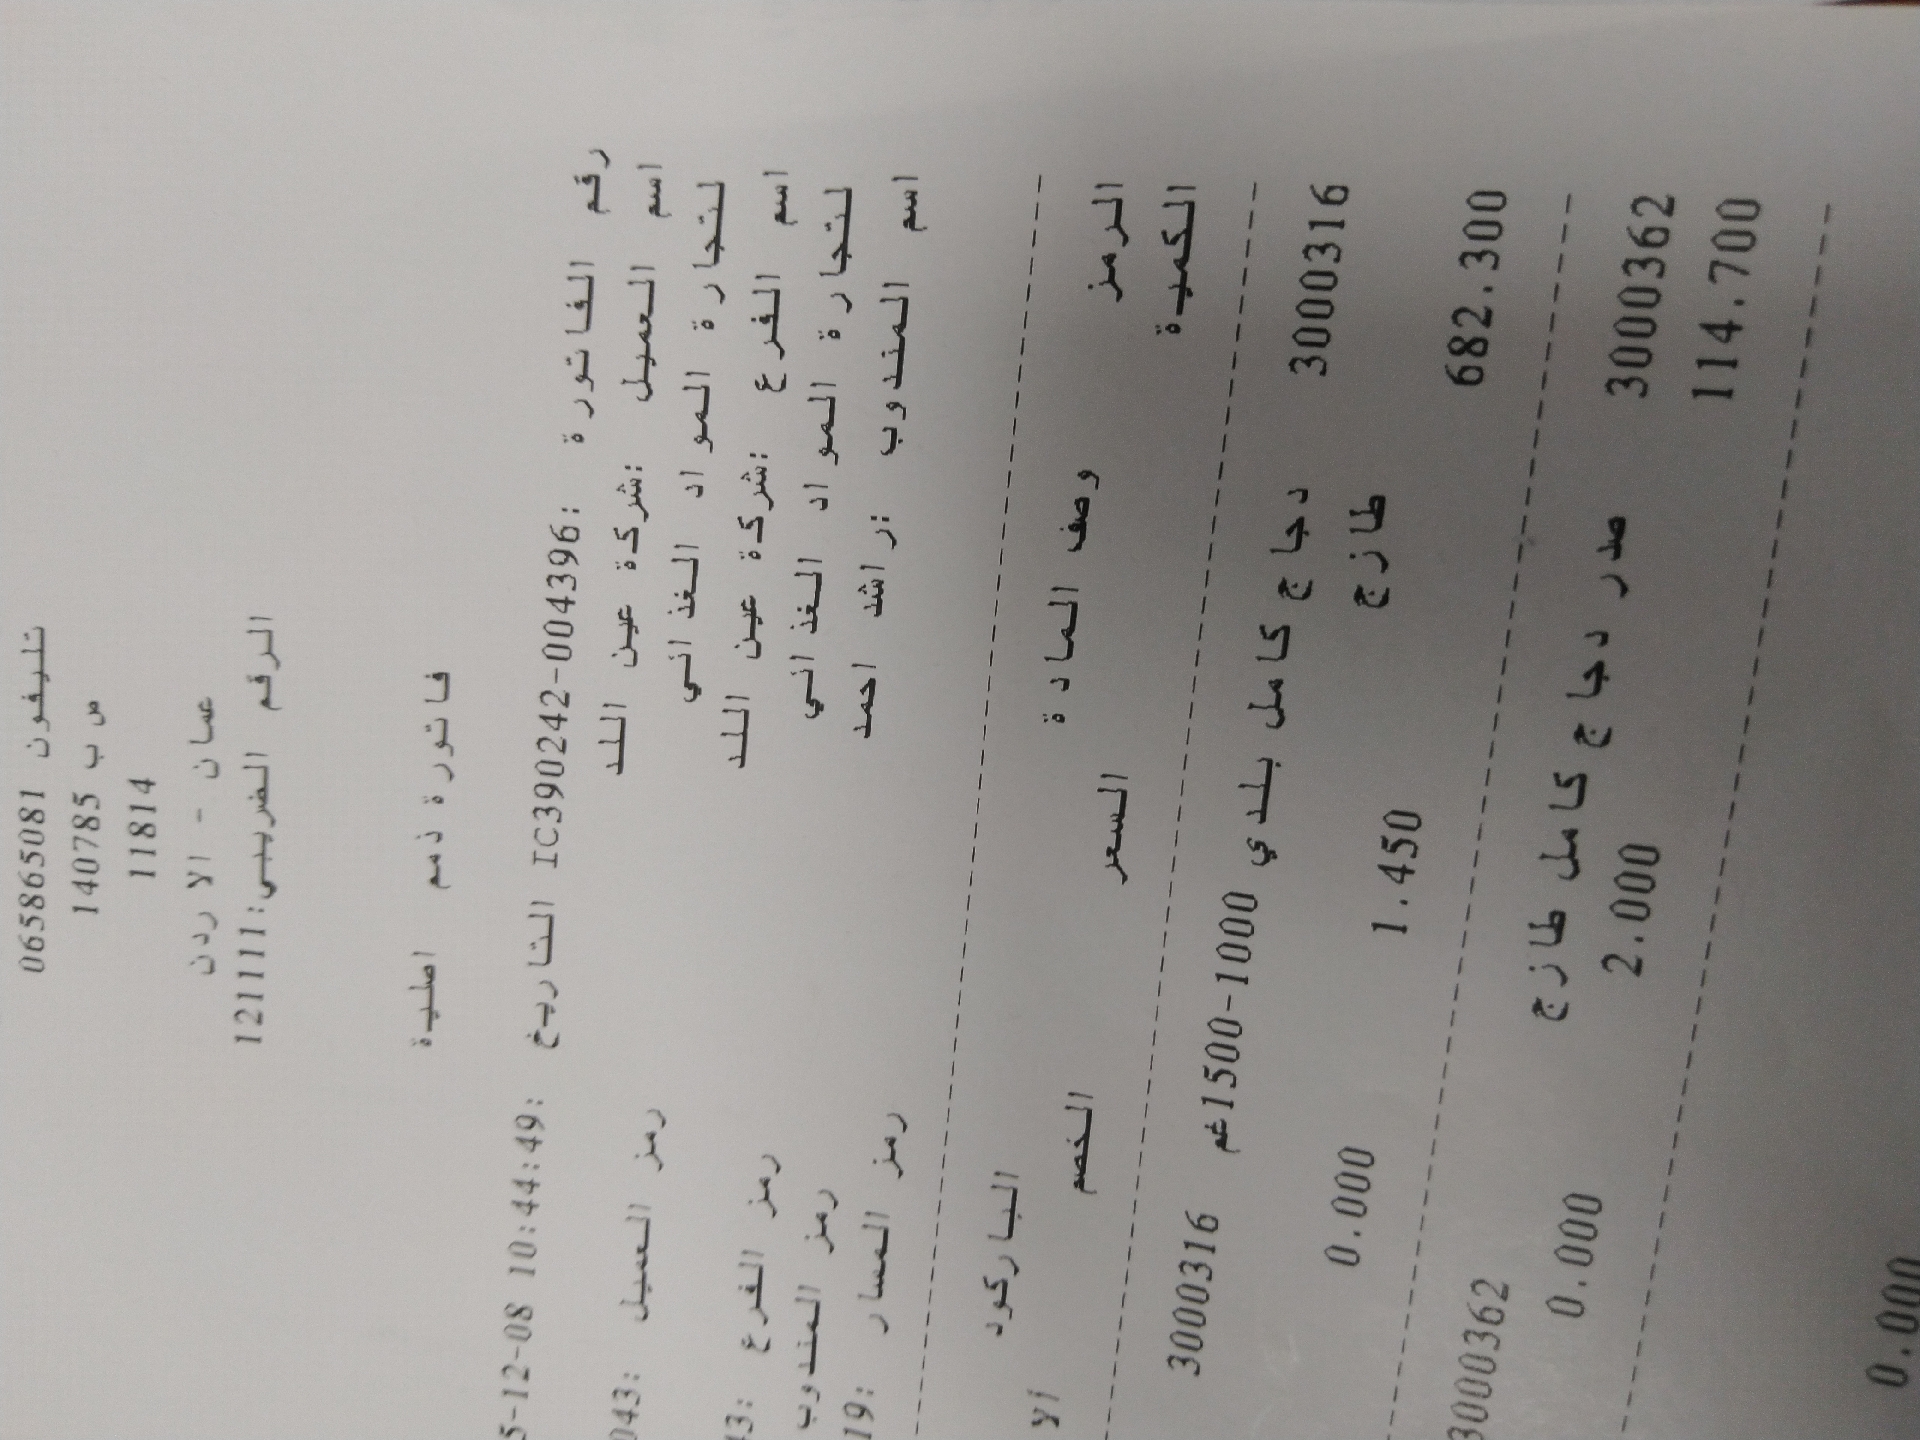 تليفون 065865081
ص ب 140785
11814
عمان - الاردن
الرقم الضريبي:121111
فاتورة ذمم اصلية
رقم الفاتورة :IC390242-004396 التاريخ :5-12-08 10:44:49
اسم العميل :شركة عين اللد رمز العميل :043
لتجارة المواد الغذائي
اسم الفرع :شركة عين اللد رمز الفرع :43
لتجارة المواد الغذائي رمز المندوب
اسم المندوب :راشد احمد رمز المسار :19
الرمز وصف المادة الباركود
الكمية السعر الخصم الا
3000316 دجاج كامل بلدي 1000-1500غم 3000316
طازج
682.300 1.450 0.000
3000362 صدر دجاج كامل طازج 3000362
114.700 2.000 0.000
0.000